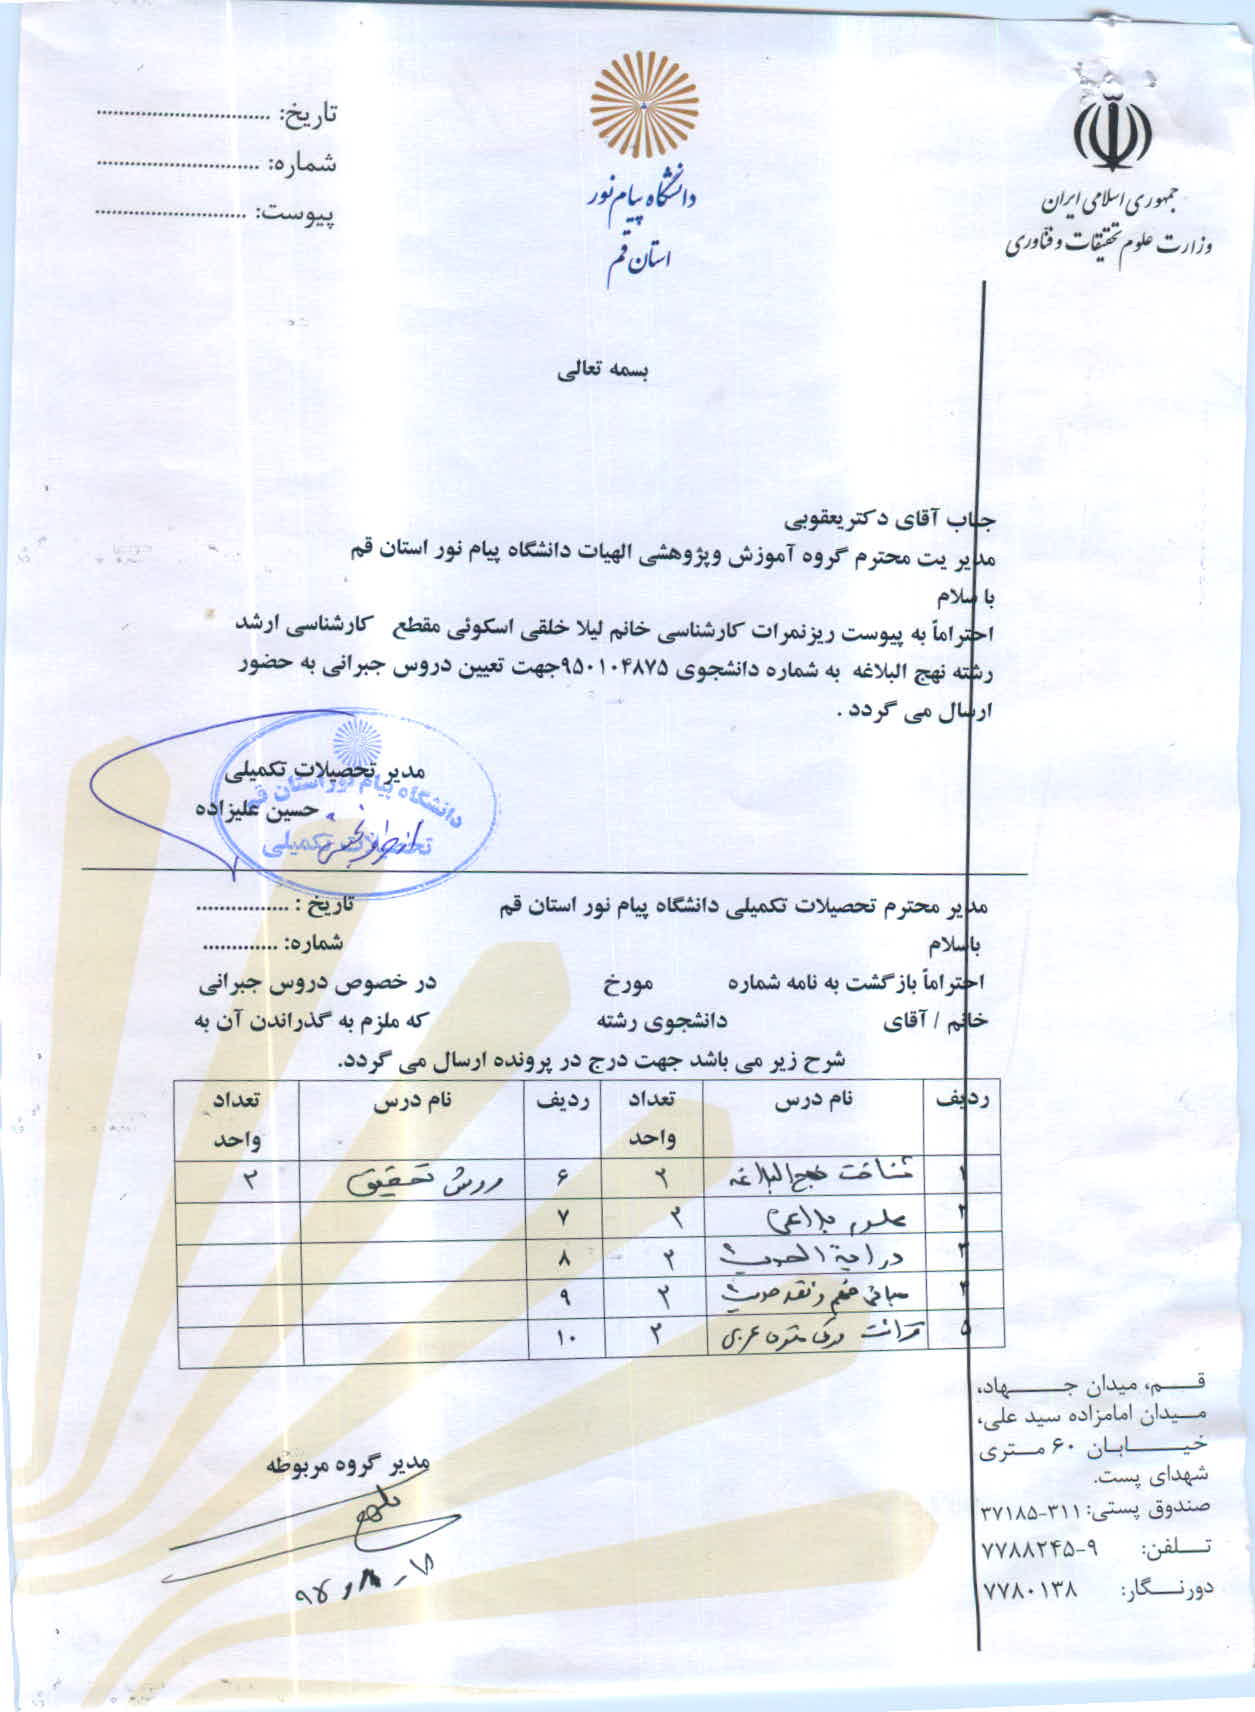 جمهوری اسلامی ایران
وزارت علوم تحقیقات و فنّاوری
دانشگاه پیام نور
استان قم
تاریخ: ..............................
شماره: ............................
پیوست: ..........................
بسمه تعالی
جناب آقای دکتریعقوبی
مدیر یت محترم گروه آموزش وپژوهشی الهیات دانشگاه پیام نور استان قم
با سلام
احتراماً به پیوست ریزنمرات کارشناسی خانم لیلا خلقی اسکوئی مقطع کارشناسی ارشد
رشته نهج البلاغه به شماره دانشجوی ۹۵۰۱۰۴۸۷۵جهت تعیین دروس جبرانی به حضور
ارسال می گردد .
مدیر تحصیلات تکمیلی
حسین علیزاده
دانشگاه پیام نور استان قم
تحصیلات تکمیلی
مدیر محترم تحصیلات تکمیلی دانشگاه پیام نور استان قم تاریخ : ................
باسلام شماره: .............
احتراماً بازگشت به نامه شماره مورخ در خصوص دروس جبرانی
خانم / آقای دانشجوی رشته که ملزم به گذراندن آن به
شرح زیر می باشد جهت درج در پرونده ارسال می گردد.
ردیف نام درس تعداد واحد ردیف نام درس تعداد واحد
۱ شناخت نهج البلاغه ۲ ۶ روش تحقیق ۲
۲ علوم بلاغی ۲ ۷
۳ درایة الحدیث ۲ ۸
۴ مبانی فهم و نقد حدیث ۲ ۹
۵ قرائت و درک متون عربی ۲ ۱۰
مدیر گروه مربوطه
قـــم، میدان جـــهاد،
میـدان امامزاده سید علی،
خیـــابـان ۶۰ متـری
شهدای پست.
صندوق پستی: ۳۱۱-۳۷۱۸۵
تـــلفن: ۹-۷۷۸۸۲۴۵
دورنــگار: ۷۷۸۰۱۳۸